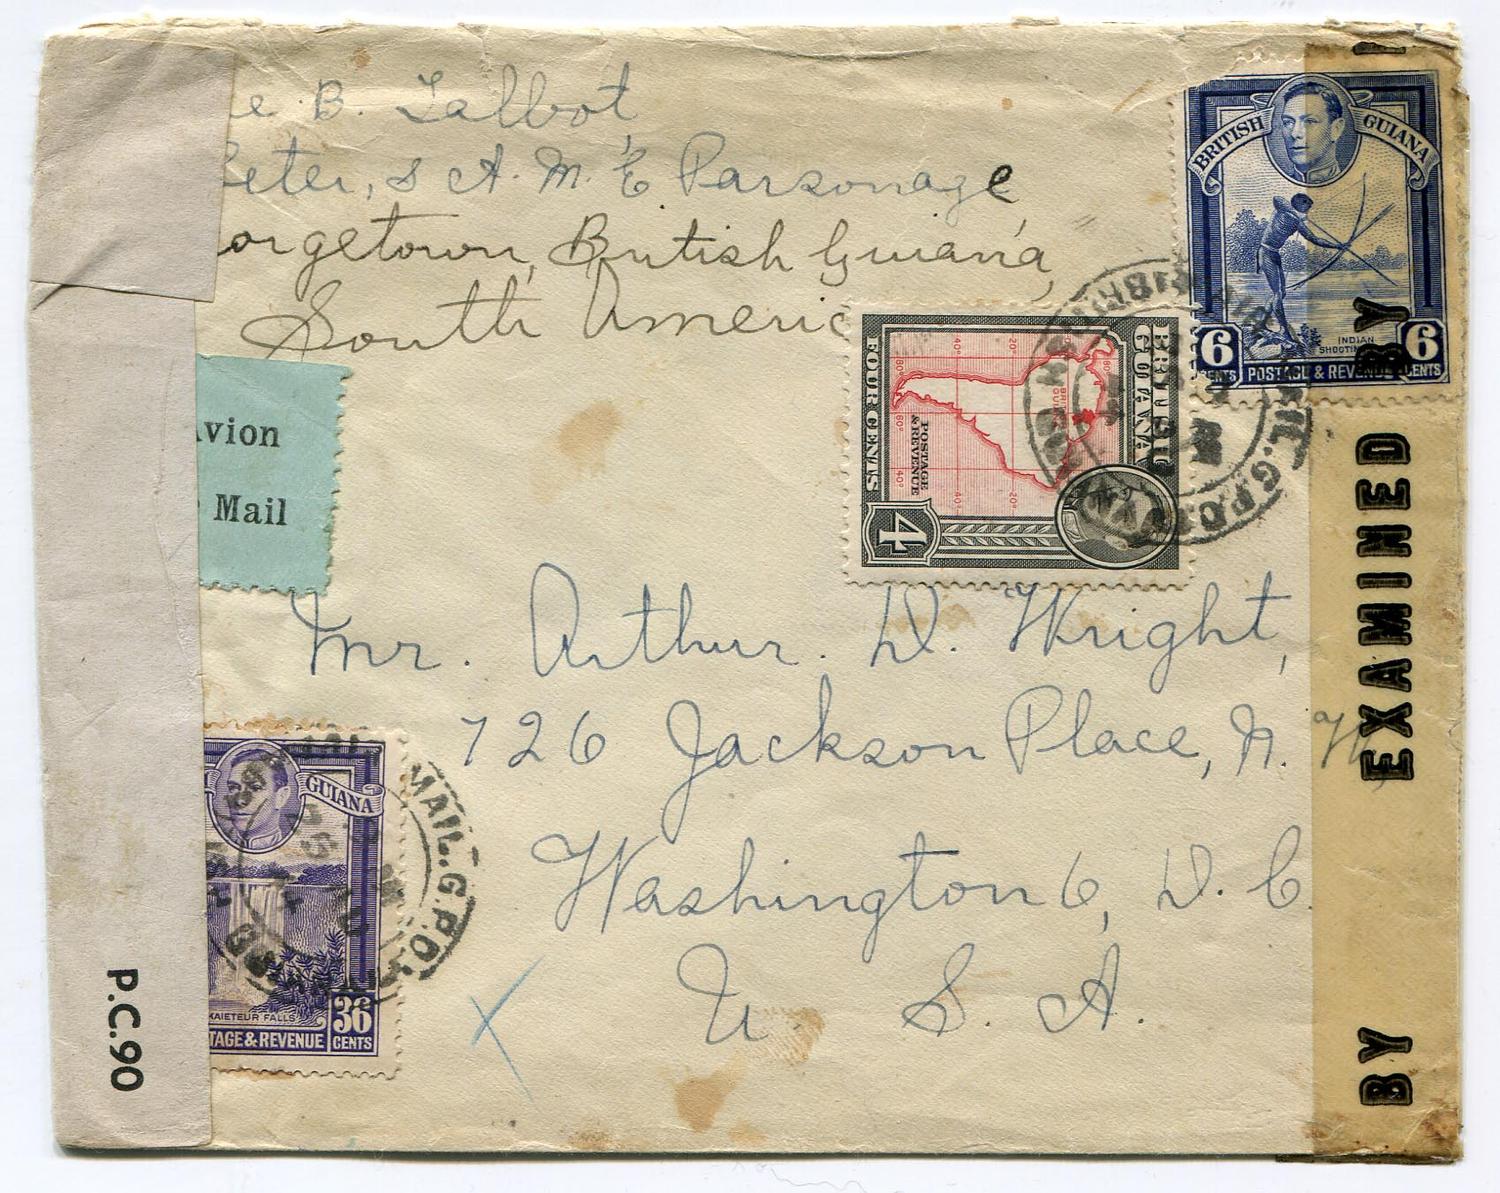 e B. Talbot
Peter, s A. M. E Parsonage
orgetown, British Guiana,
South Americ
Avion
Mail
BRITISH GUIANA
INDIAN
SHOOTIN
6 6
CENTS POSTAGE & REVENUE CENTS
BRITISH
GUIANA
POSTAGE
& REVENUE
FOUR CENTS
4
MAIL.G.P.O.
Mr. Arthur D. Wright,
726 Jackson Place, N. W,
Washington 6, D. C.
U. S. A.
GUIANA
MAIL.G.P.O.
KAIETEUR FALLS
36
TAGE & REVENUE CENTS
P.C.90
BY
EXAMINED
BY